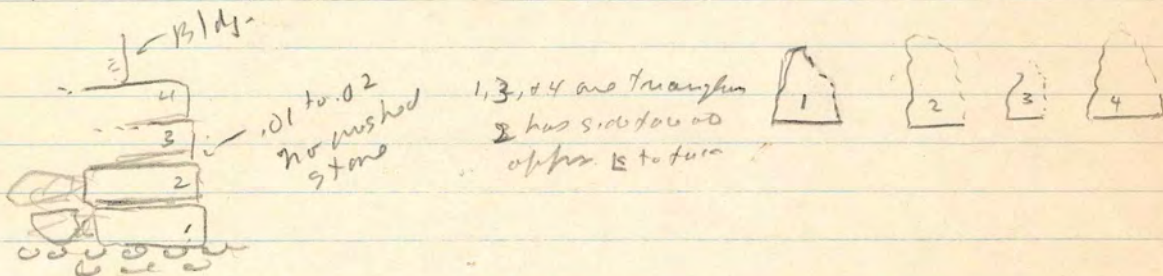 Bldg.
4
3
2
1
.01 to .02
no pushed
stone
1, 3, + 4 are triangles
2 has side face as
oppos. to face
1
2
3
4